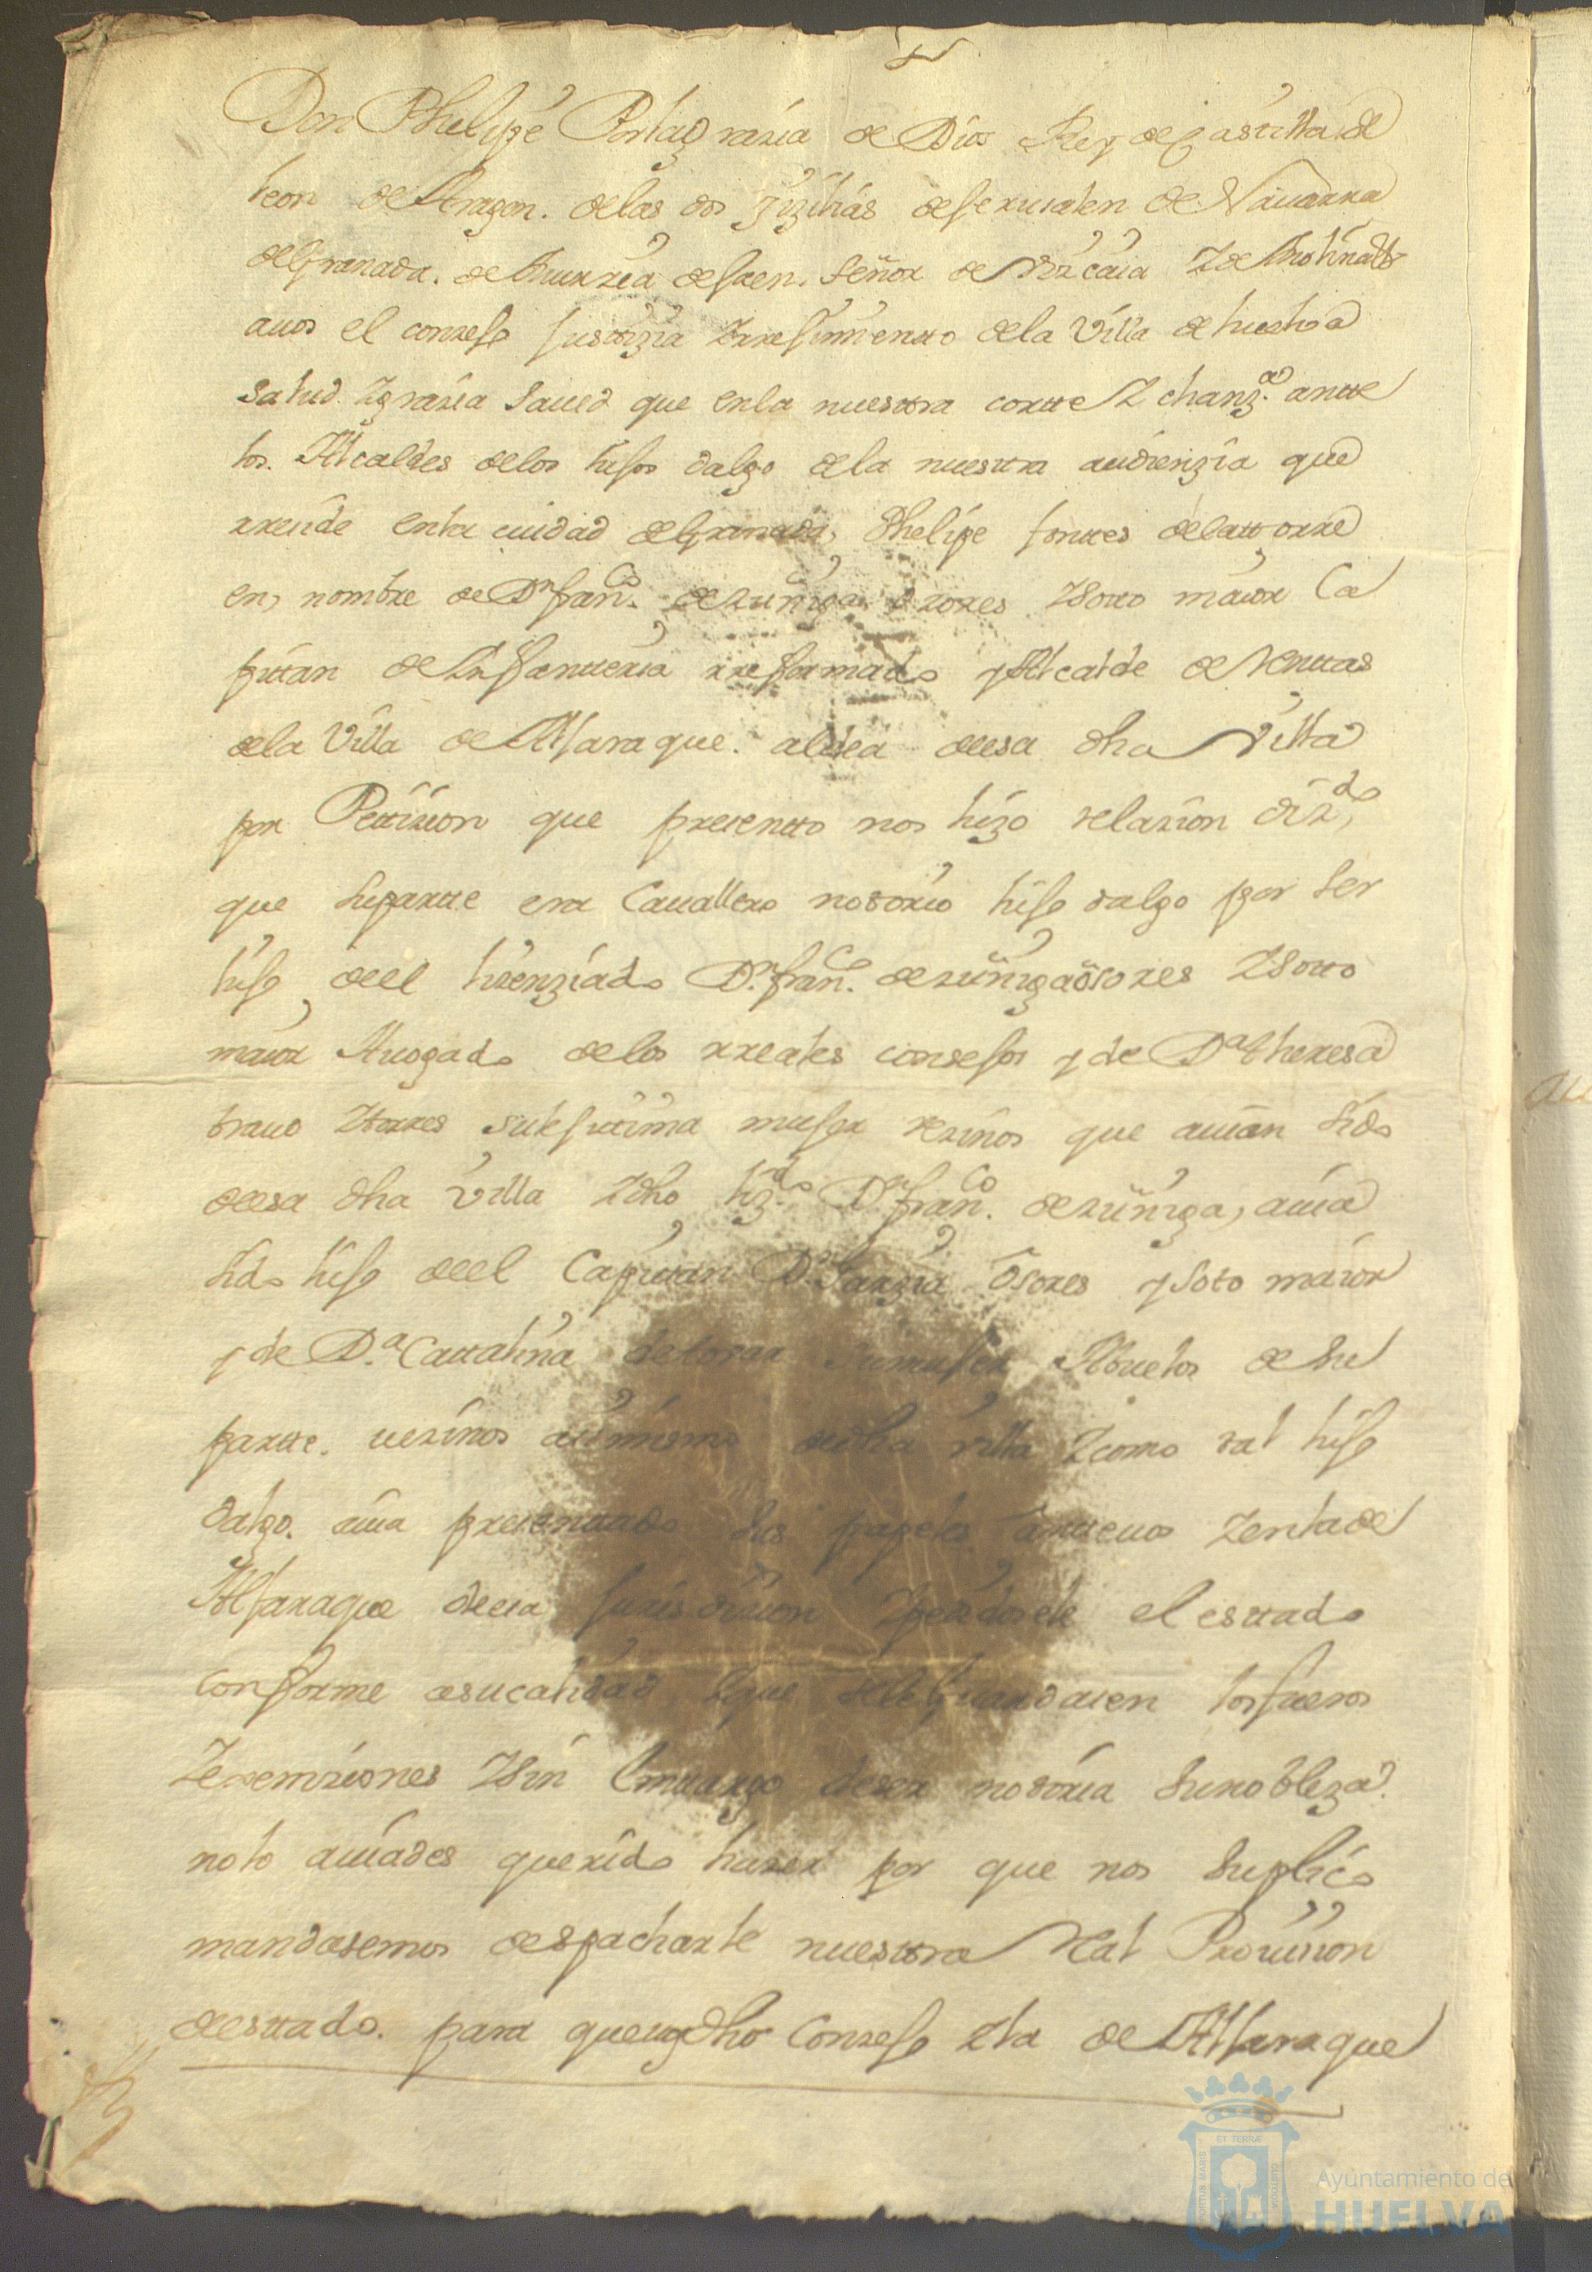 Don Phelipe Por la grazia de Dios Rey de Castilla de
leon de Aragon. de las dos Zizilias de Jerusalen de Nauarra
de Granada. de Murzia de Jaen. Señor de Vizcaia Z de Molina &
a uos el conzejo Justizia Z rrejimiento de la Villa de huelua
Salud Z grazia Saued que en la nuestra cortte Z chanz.ª antte
los Alcaldes de los hijos dalgo de la nuestra audienzia que
rreside en la ciudad de Granada, Phelipe fonttes de la ttorre
en nombre de Dn fran.co de zuñiga osores Z Sotto maior Ca
pittan de Infantteria rreformado y Alcalde de Renttas
de la Villa de Alfaraque. aldea de esa dha Villa
por Pettizion que presentto nos hizo relazion diz.do
que su partte era Cauallero notorio hijo dalgo por ser
hijo de el lizenziado Dn fran.co de zuñiga osores Z Sotto
maior Auogado de los rreales consejos y de Dª theresa
brauo Z torres su lejitima mujer vezinos que auian sido
de esa dha Villa Z dho liz.do Dn fran.co de zuñiga, auia
sido hijo de el Capittan Dn Garzia Osores y Soto maior
y de D.ª Cattalina de touar su mujer Abuelos de su
partte. uezinos asimismo de dha villa Z como tal hijo
dalgo. auia presenttado sus papeles antte uos Z en la de
Alfaraque de esa jurisdizion Z pedidoles el esttado
conforme a su calidad Z que se le guardasen los fueros
Z esemziones Z sin embargo de ser notoria su nobleza
no lo auiades querido hazer por que nos suplico
mandasemos despacharle nuestra Real Prouision
de esttado. para que uos dho Conzejo Z la de Alfaraque
Ayuntamiento de
HUELVA